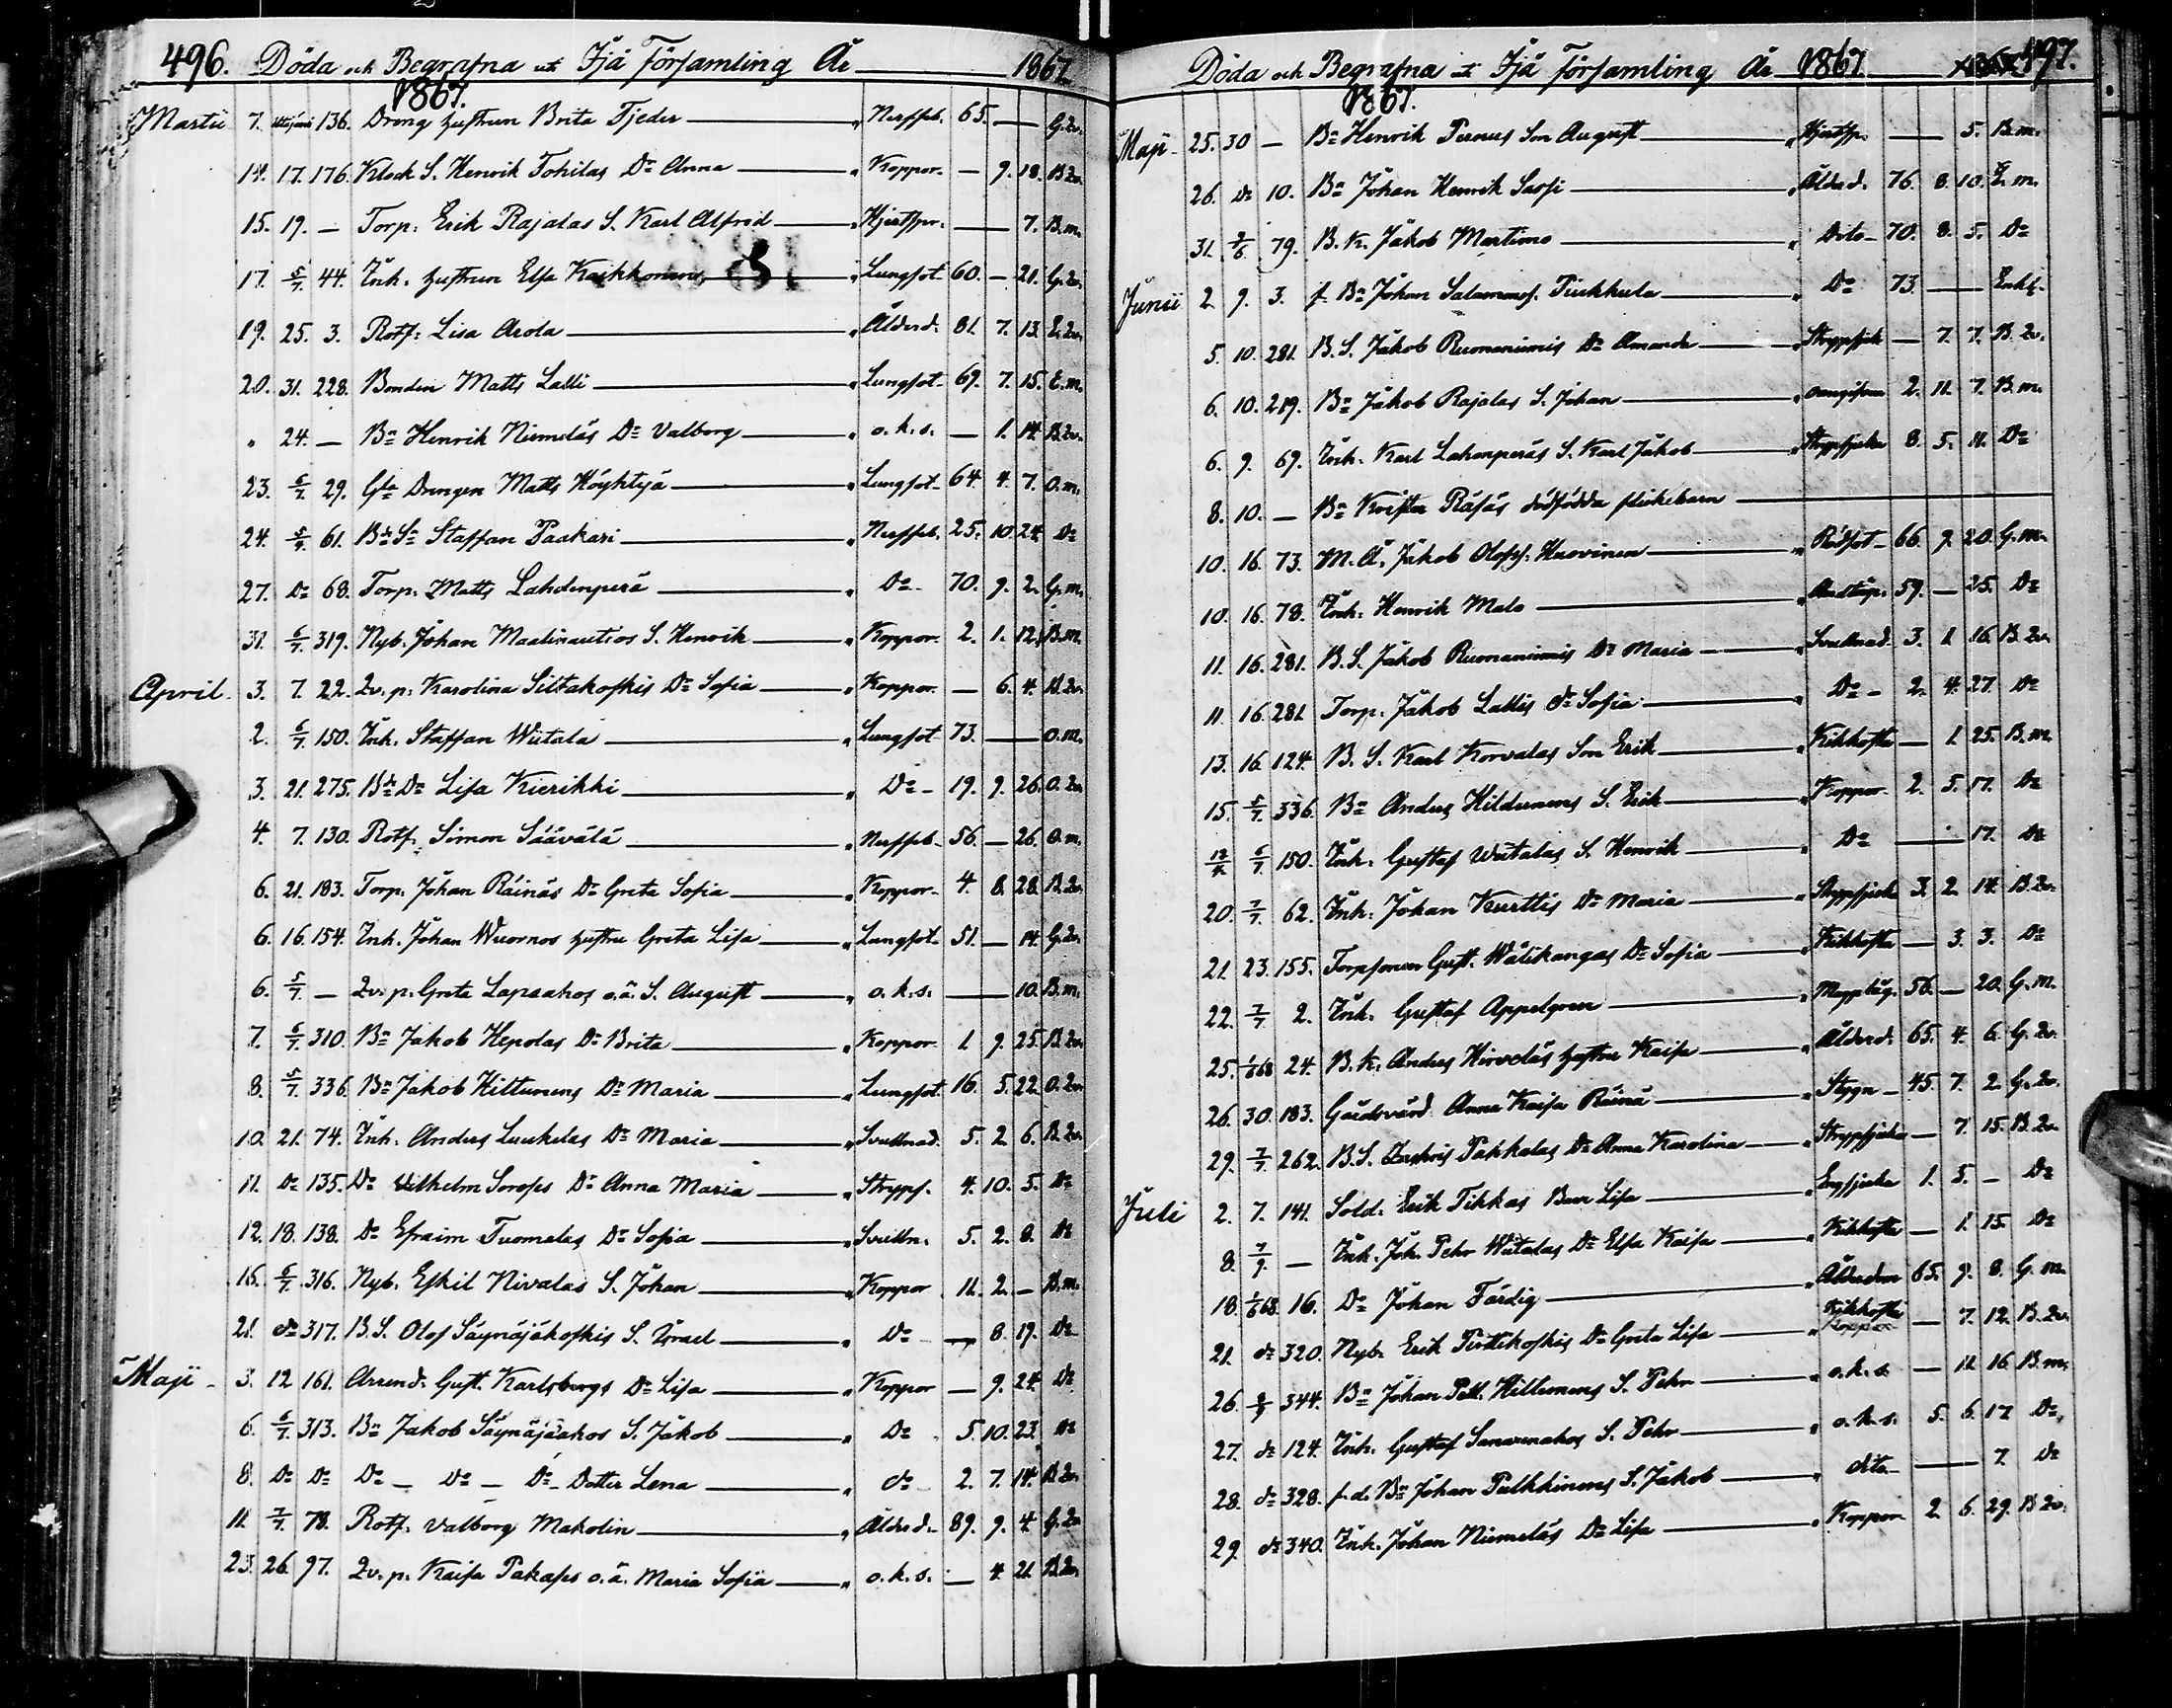 496. Döda och Begrafna uti Ijå Församling År 1867
1867.
Martii 7. 136. Dreng hustrun Brita Tjeder " Nerffeb. 65. — G.qv.
14. 17. 176. Klock S. Henrik Tohilas Dr Anna " Koppor — 9. 18. B.qv.
15. 19. — Torp. Erik Rajalas S. Karl Alfred " Hjertspr. — 7. B.m.
17. 5/7. 44. Inh. hustrun Elsa " Lungsot 60. — 21. G.qv.
19. 25. 3. Rotf. Lisa Arola " Ålderd. 81. 7. 13. E.qv.
20. 31. 228. Bonden Matts Lalli " Lungsot 69. 7. 15. E.m.
" 24. — Bn Henrik Niemeläs Dr Valborg " o.k.s. — 1. 14. B.qv.
23. 6/7. 29. Gla Drengen Matts Höyhtyä " Lungsot 64. 4. 7. O.m.
24. 5/7. 61. Bde Sn Staffan Paakari " Nerffeb. 25. 10. 24. Do
27. Do 68. Torp. Matts Lahdenperä " Do 70. 9. 2. G.m.
31. 6/7. 319. Nyb. Johan Maalinautios S. Henrik " Koppor. 2. 1. 12. B.m.
April 3. 7. 22. Qv.p. Karolina Siltakoskis Dr Sofia " Koppor. — 6. 4. B.qv.
2. 6/7. 150. Inh. Staffan Wiitala " Lungsot 73. — O.m.
3. 21. 275. Bde Dr Lisa Kierikki " Do 19. 9. 26. O.qv.
4. 7. 130. Rotf. Simon Säävälä " Nerffeb. 56. — 26. O.m.
6. 21. 183. Torp. Johan Räinäs Dr Greta Sofia " Koppor 4. 8. 28. B.qv.
6. 16. 154. Inh. Johan Wuornos hustru Greta Lisa " Lungsot 51. — 14. G.qv.
6. 5/7. — Qv.p. Greta Lapsahos o.ä. S. August " o.k.s. — 10. B.m.
7. 6/7. 310. Bn Jakob Hepolas Dr Brita " Koppor 1. 9. 25. B.qv.
8. 5/7. 336. Bn Jakob Hiltunens Dr Maria " Lungsot. 16. 5. 22. O.qv.
10. 21. 74. Inh. Anders Luukelas Dr Maria " Svullnad. 5. 2. 6. B.qv.
11. Do 135. Do Wilhelm Dr Anna Maria " Strypsj. 4. 10. 5. Do
12. 18. 138. Do Efraim Tuomelas Dr Sofia " Svulln. 5. 2. 8. Do
16. 6/7. 316. Nyb. Eskil Nivalas S. Johan " Koppor 11. 2. — B.m.
21. do 317. B.S. Olof Säynäjäkoskis S. Israel " Do — 8. 19. Do
Maji 3. 12 161. Arrend. Gust. Karlsbergs Dr Lisa " Koppor — 9. 24. Do
6. 6/7. 313. Bn Jakob Säynäjäahos S. Jakob " Do 5. 10. 23. Do
8. Do Do Do — Do — Do Dotter Lena " do 2. 7. 14. B.qv.
11. 7/7. 78. Rotf. Valborg Makolin " Ålderd. 89. 9. 4. G.qv.
23. 26. 97. Qv.p. Kaisa Pakaps o.ä. Maria Sofia " o.k.s. — 4. 21. B.qv.
Döda och Begrafna uti Ijå Församling År 1867 497.
1867.
Maji 25. 30 — Bn Henrik Pernus Son August " Hjertsp. — 5. B.m.
26. do 10. Bn Johan Henrik Sassi " Ålderd. 76. 8. 10. E.m.
31. 2/6. 79. B.k. Jakob Martimo " Dito 70. 8. 5. Do
Junii 2. 9. 3. f. Bn Johan Salomonss. Tiurkkula " Do 73. — Enkl.
5. 10. 281. B.S. Jakob Ruonaniemis Dr Amanda " Strypsjuk — 7. 7. B.qv.
6. 10. 219. Bn Jakob Rajalas S. Johan " 2. 11. 7. B.m.
6. 9. 69. Inh. Karl Lahenperäs S. Karl Jakob " Strypsjuka 8. 5. 11. Do
8. 10. — Bn Krister Räsäs dödfödda flickebarn
10. 16. 73. M.Å. Jakob Olofss. Huovinen " Rödsot 66. 9. 20. G.m.
10. 16. 78. Inh. Henrik Malo " Andtäp. 59. — 25. Do
11. 16. 281. B.S. Jakob Ruonaniemis Dr Maria " Svullnad. 3. 1. 16. B.qv.
11. 16. 281. Torp. Jakob Lallis dr Sofia " Do 2. 4. 27. Do
13. 16. 124. B.S. Karl Korvalas Son Erik " Kikhosta — 1. 25. B.m.
15. 5/7. 336. Bn Anders Hiltunens S. Erik " Koppor 2. 5. 17. Do
6/7. 150. Inh. Gustaf Wiitalas S. Henrik " Do — 17. Do
20. 7/7. 62. Inh. Johan Kurttis Dr Maria " Strypsjuka 3. 2. 14. B.qv.
21. 23. 155. Torpsonen Gust. Wälikangas Dr Sofia " Kikhosta — 3. 3. Do
22. 7/7. 2. Inh. Gustaf Appelgren " 56. — 20. G.m.
25. 1/6 68 24. B.k. Anders Hirveläs hustru Kaisa " Ålderd. 65. 4. 6. G.qv.
26. 30. 183. Gårdsvärd. Anna Kaisa Räinä " Stygn 45. 7. 2. G.qv.
29. 7/7. 262. B.S. Zachris Pakkalas Dr Anna Karolina " Strypsjuka — 7. 15. B.qv.
Juli 2. 7. 141. Sold. Erik Tikkas Barn Lisa " Engsjuka 1. 5. — Do
8. 7/9. — Inh. Joh. Pehr Wiitalas Dr Elsa Kaisa " Kikhosta — 1. 15. Do
18. 1/6 68. 16. Do Johan Färdig " Ålderdom 65. 9. 8. G.m.
21. do 320. Nyb. Erik Pirttikoskis Dr Greta Lisa " Kikhosta Koppor — 7. 12. B.qv.
26. 8/9 344. Bn Johan Pett. Hiltunens S. Pehr " o.k.s. — 11. 16. B.m.
27. do 124. Inh. Gustaf S. Pehr " o.k.s. 5. 6. 17. Do
28. do 328. f.d. Bn Johan Pulkkinens S. Jakob " dito — 7. Do
29. do 340. Inh. Johan Niemeläs Dr Lisa " Koppor 2. 6. 29. B.qv.